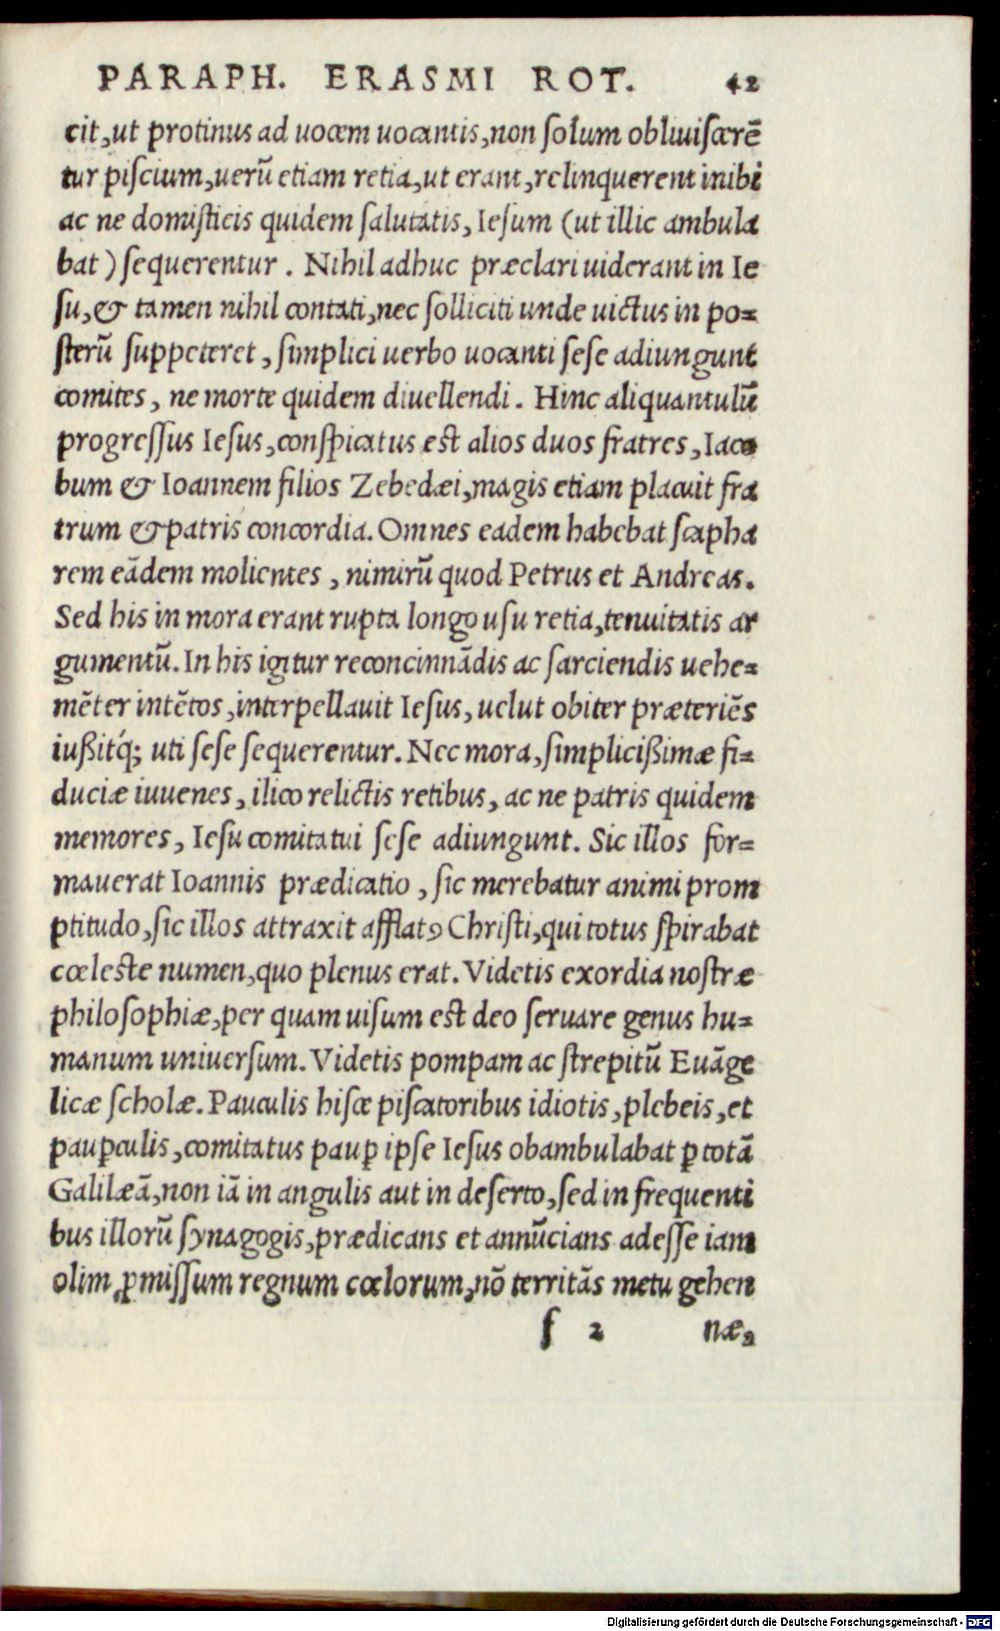 PARAPH. ERASMI ROT. 42
cit, ut protinus ad uocem uocantis, non solum obliuiscerē
tur piscium, uerū etiam retia, ut erant, relinquerent inibi
ac ne domisticis quidem salutatis, Iesum (ut illic ambula
bat) sequerentur. Nihil adhuc præclari uiderant in Ie
su, & tamen nihil contati, nec solliciti unde uictus in po=
sterū suppeteret, simplici uerbo uocanti sese adiungunt
comites, ne morte quidem diuellendi. Hinc aliquantulū
progressus Iesus, conspicatus est alios duos fratres, Iaco
bum & Ioannem filios Zebedæi, magis etiam placuit fra
trum & patris concordia. Omnes eadem habebat scapha
rem eādem molientes, nimirū quod Petrus et Andreas.
Sed his in mora erant rupta longo usu retia, tenuitatis ar
gumentū. In his igitur reconcinnādis ac sarciendis uehe=
mēter intētos, interpellauit Iesus, uelut obiter præteriēs
iußitq́; uti sese sequerentur. Nec mora, simplicißimæ fi=
duciæ iuuenes, ilico relictis retibus, ac ne patris quidem
memores, Iesu comitatui sese adiungunt. Sic illos for=
mauerat Ioannis prædicatio, sic merebatur animi prom
ptitudo, sic illos attraxit afflatꝰ Christi, qui totus spirabat
cœleste numen, quo plenus erat. Videtis exordia nostræ
philosophiæ, per quam uisum est deo seruare genus hu=
manum uniuersum. Videtis pompam ac strepitū Euāge
licæ scholæ. Pauculis hisce piscatoribus idiotis, plebeis, et
pauꝑculis, comitatus pauꝑ ipse Iesus obambulabat ꝑ totā
Galilæā, non iā in angulis aut in deserto, sed in frequenti
bus illorū synagogis, prædicans et annūcians adesse iam
olim ꝓmissum regnum cœlorum, nō territās metu gehen
f 2 næ,
Digitalisierung gefördert durch die Deutsche Forschungsgemeinschaft - DFG